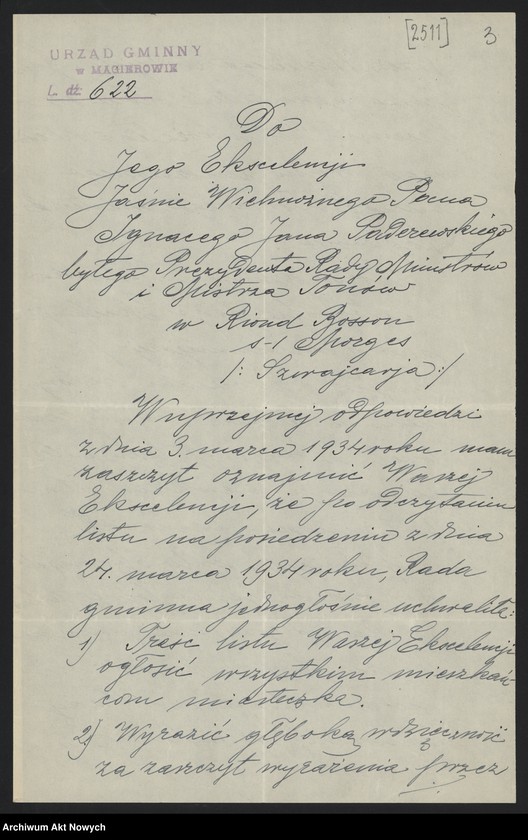 [2511] 3
URZĄD GMINNY
w MAGIEROWIE
L. dz. 622
Do
Jego Ekscelencji
Jaśnie Wielmożnego Pana
Ignacego Jana Paderewskiego
byłego Prezydenta Rady Ministrów
i Mistrza Tonów
w Riond Bosson
s-/ Morges
/: Szwajcarja :/
W uprzejmej odpowiedzi
z dnia 3. marca 1934 roku mam
zaszczyt oznajmić Waszej
Ekscelencji, że po odczytaniu
listu na posiedzeniu z dnia
24. marca 1934 roku, Rada
gminna jednogłośnie uchwaliła:
1) Treść listu Waszej Ekscelencji
ogłosić wszystkim mieszkań-
com miasteczka.
2) Wyrazić głęboką wdzięczność
za zaszczyt wyrażenia przez
Archiwum Akt Nowych